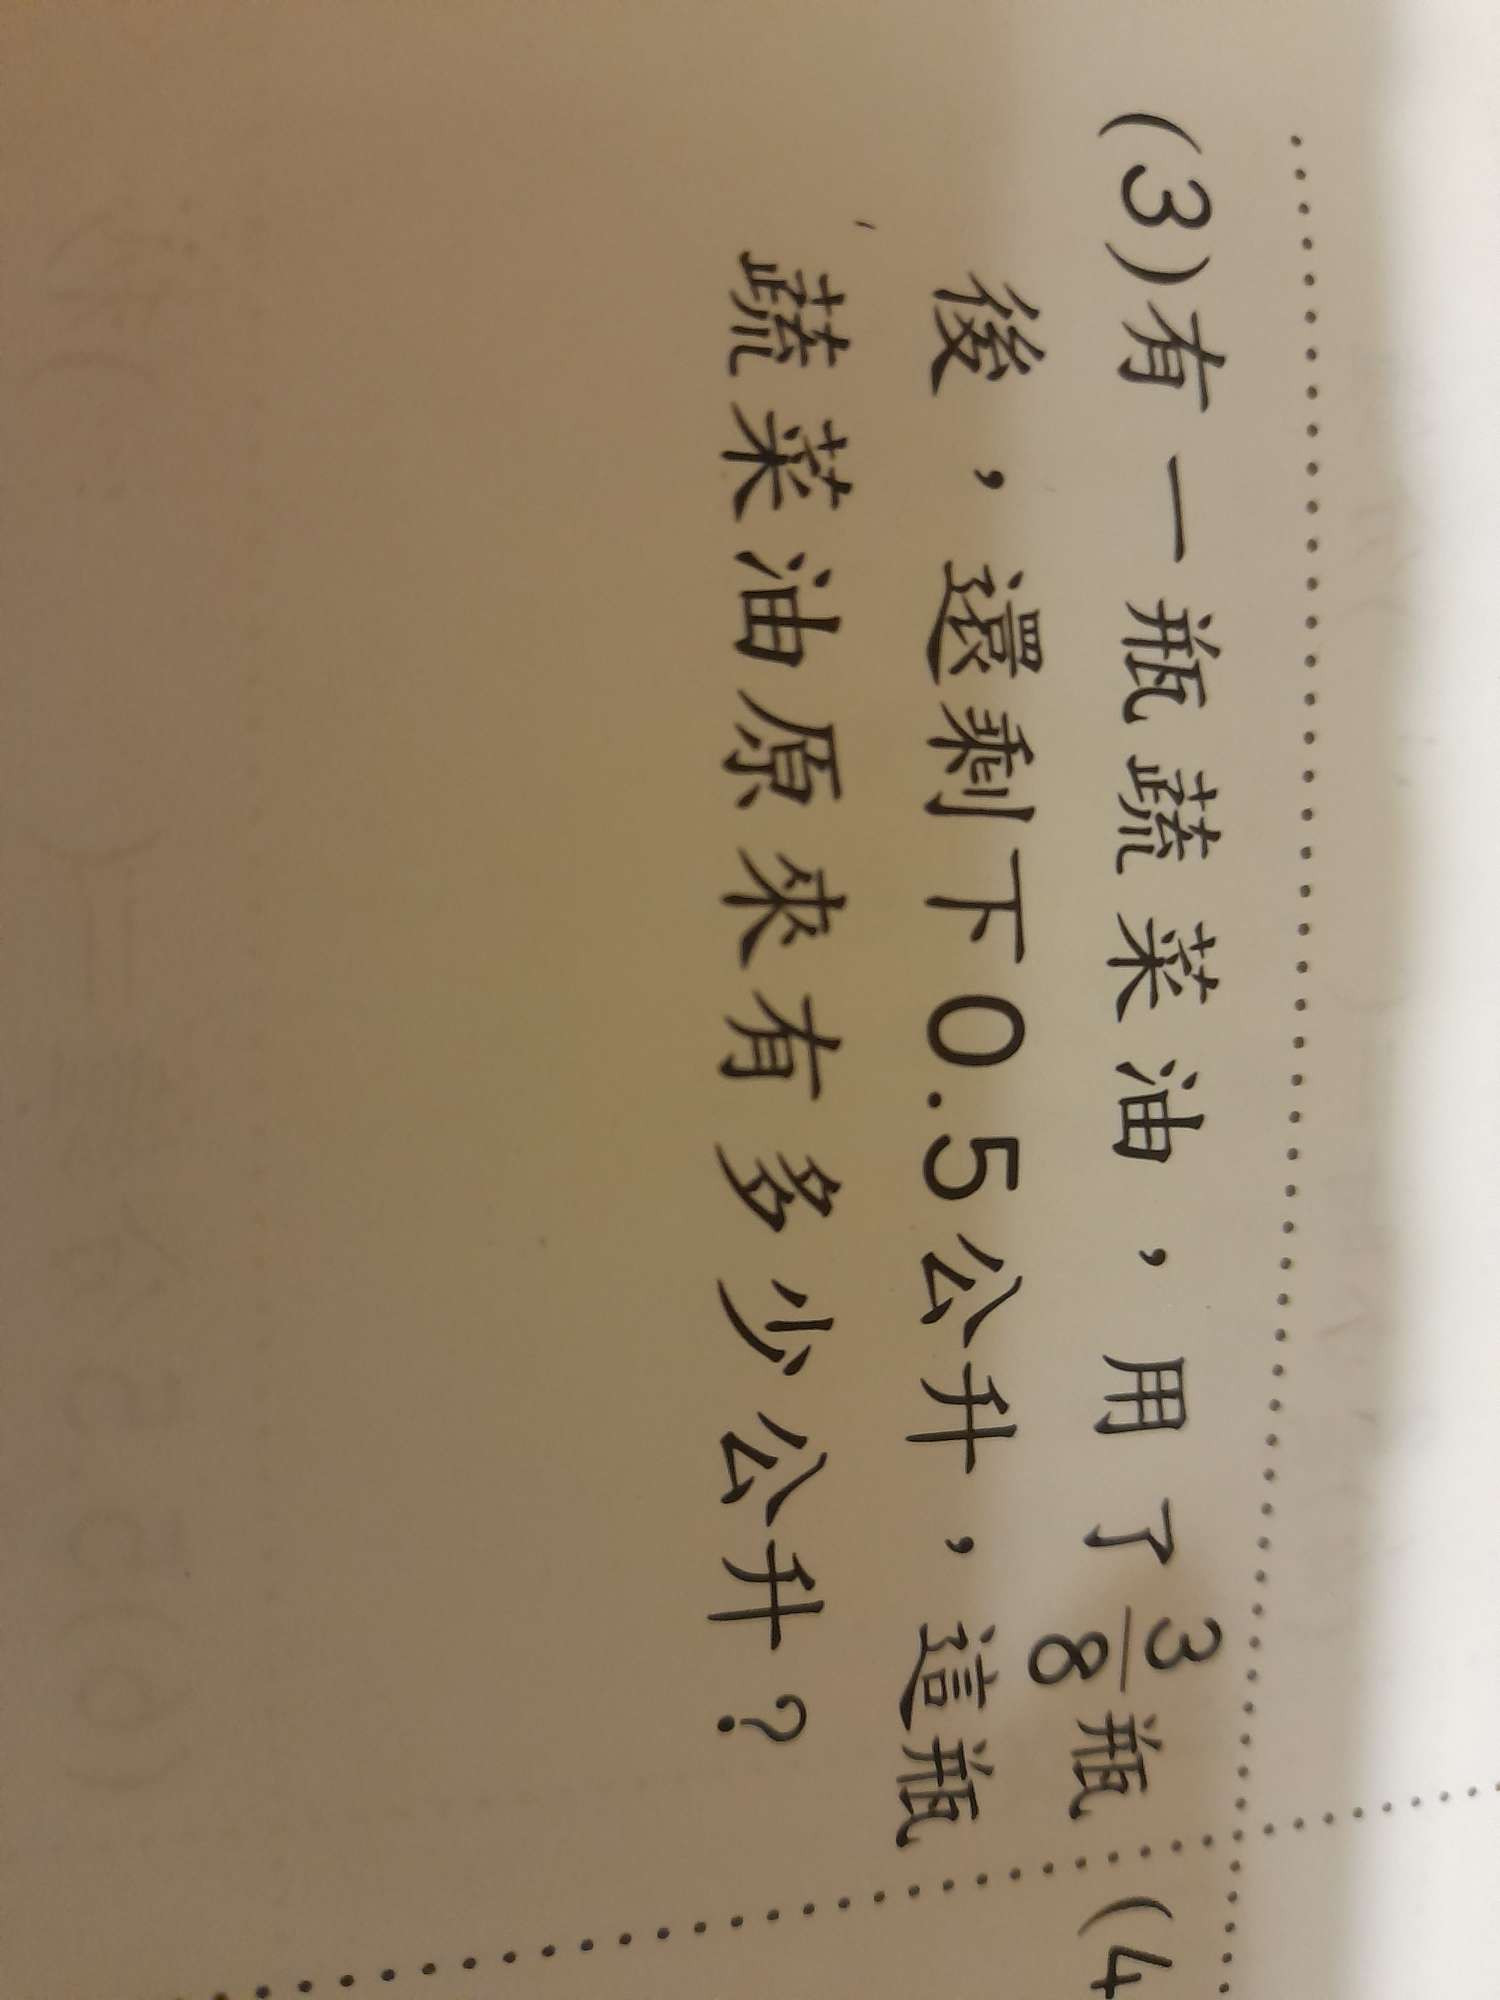 (3)有一瓶蔬菜油，用了3/8瓶
後，還剩下0.5公升，這瓶
蔬菜油原來有多少公升？
(4